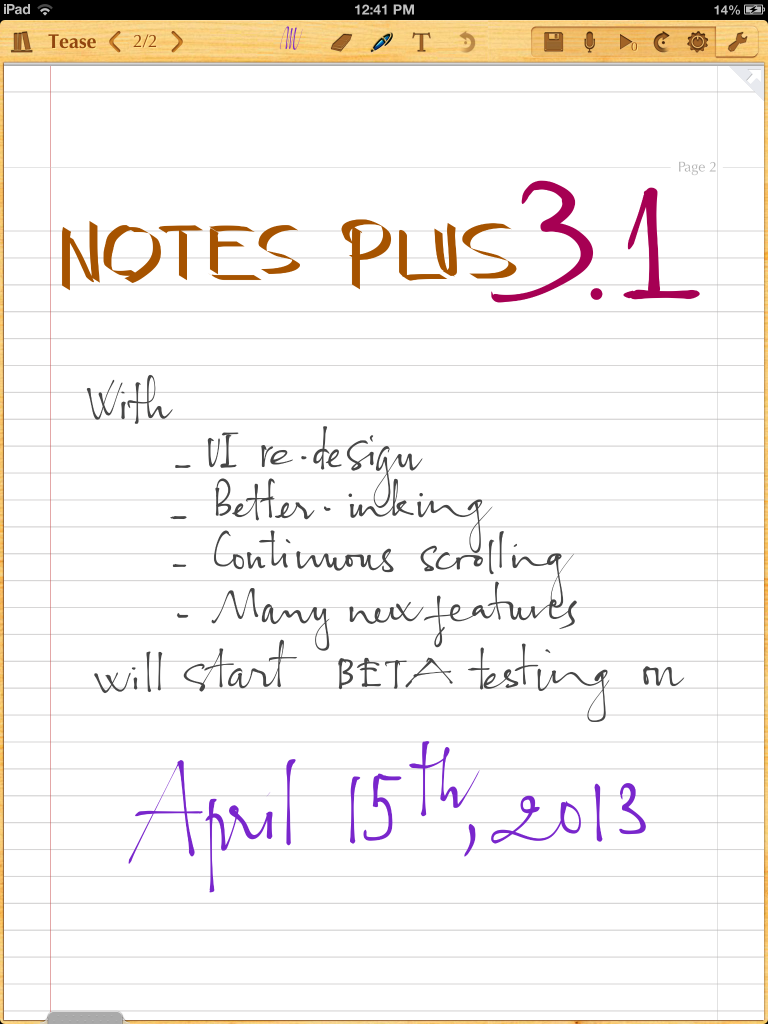 iPad 12:41 PM 14%
Tease 2/2 T 0
Page 2
NOTES PLUS 3.1
With
- UI re-design
- Better-inking
- Continuous scrolling
- Many new features
will start BETA testing on
April 15th, 2013